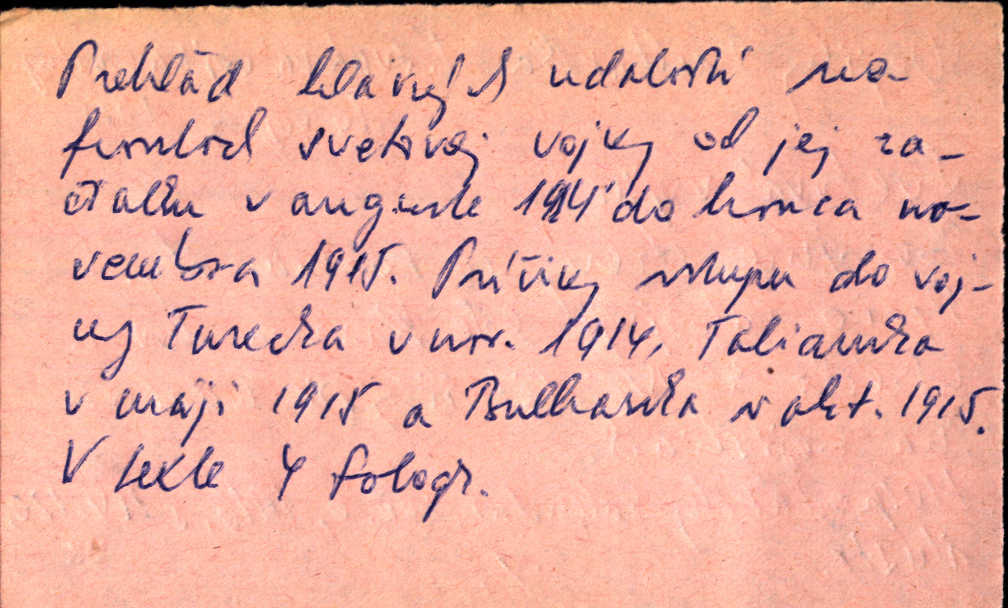 Prehľad hlavných udalostí na
frontoch svetovej vojny od jej za-
čiatku v auguste 1914 do konca no-
vembra 1915. Príčiny vstupu do voj-
ny Turecka v nov. 1914, Talianska
v máji 1915 a Bulharska v okt. 1915.
V texte 4 fotogr.